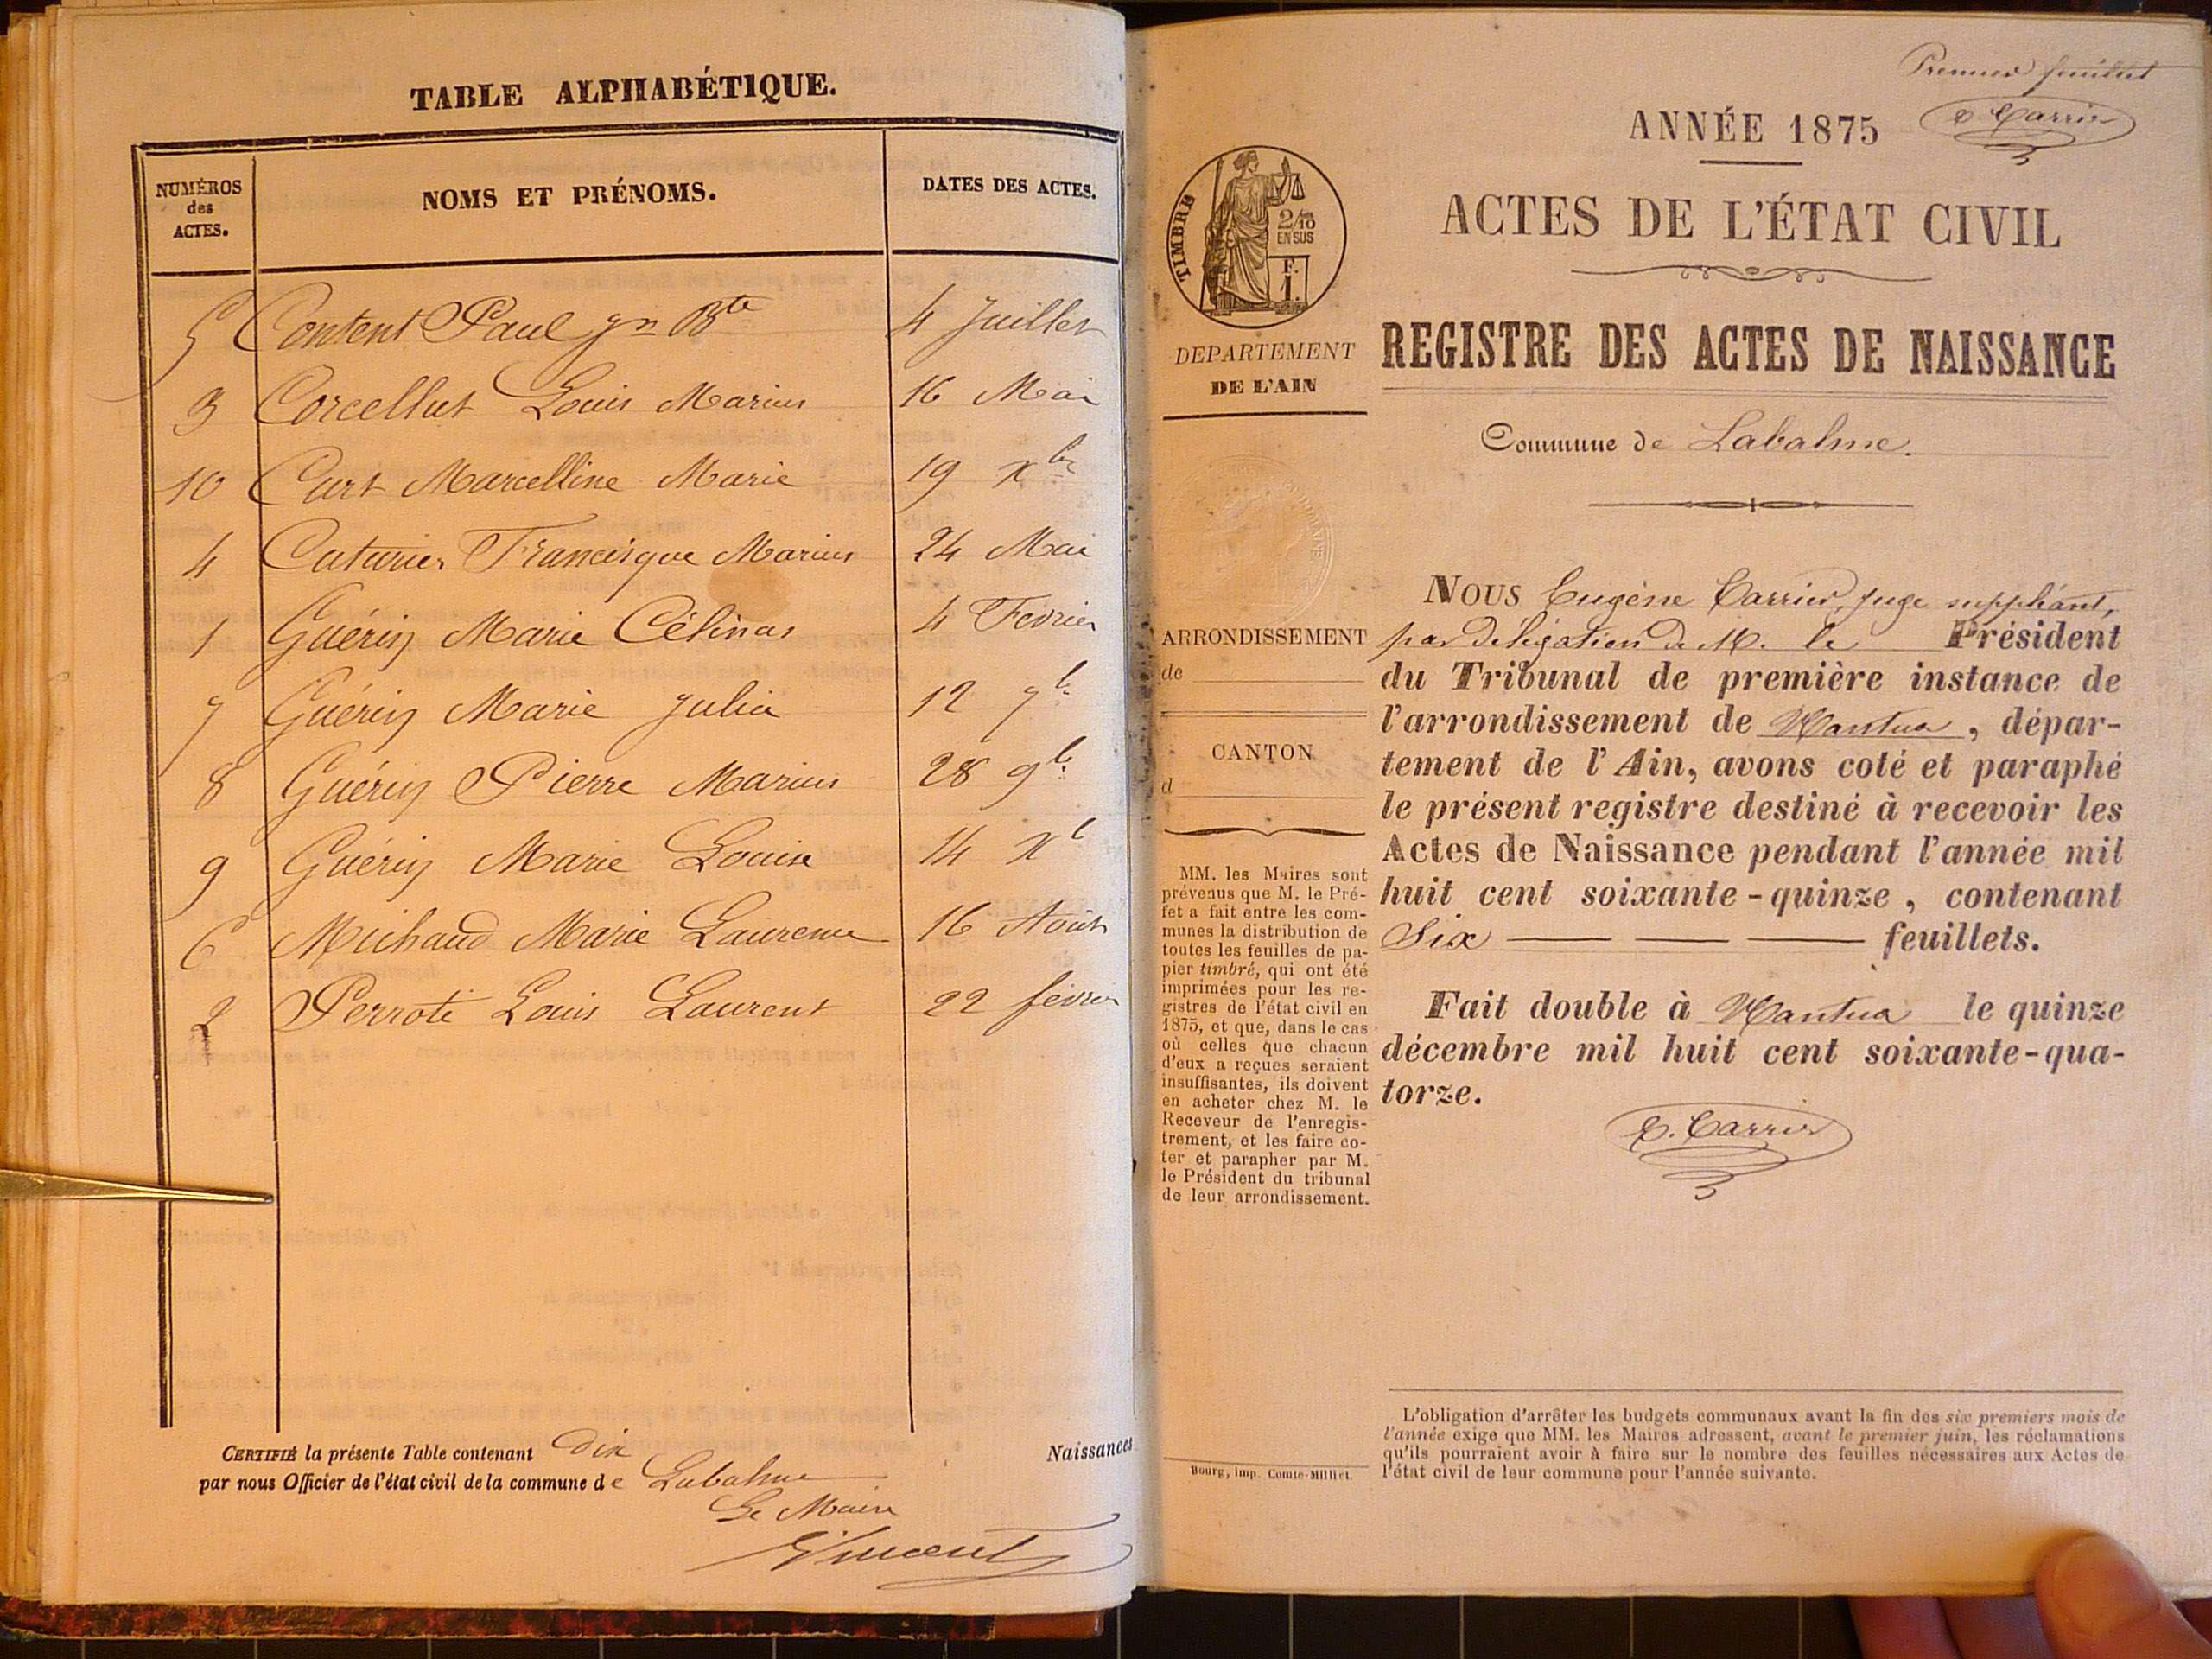 TABLE ALPHABÉTIQUE.
NUMÉROS des ACTES. NOMS ET PRÉNOMS. DATES DES ACTES.
5 Content Paul Jn Bte 4 Juillet
3 Corcellut Louis Marius 16 Mai
10 Curt Marcelline Marie 19 Xbre
4 Cuturier Francisque Marius 24 Mai
1 Guérin Marie Célinas 4 Fevrier
7 Guérin Marie Julia 12 7b.
8 Guérin Pierre Marius 28 9b.
9 Guérin Marie Louise 14 Xb
6 Michaud Marie Laurence 16 Août
2 Perroté Louis Laurent 22 fevrier
CERTIFIÉ la présente Table contenant Dix
par nous Officier de l'état civil de la commune de Labalme
Le Maire
Vincent
Naissances.
Premier feuillet
E. Carrier
ANNÉE 1875
ACTES DE L'ÉTAT CIVIL
TIMBRE
2/10
EN SUS
F.
1.
DÉPARTEMENT
DE L'AIN
REGISTRE DES ACTES DE NAISSANCE
Commune de Labalme.
ARRONDISSEMENT
de
CANTON
d
MM. les Maires sont
prévenus que M. le Pré-
fet a fait entre les com-
munes la distribution de
toutes les feuilles de pa-
pier timbré, qui ont été
imprimées pour les re-
gistres de l'état civil en
1875, et que, dans le cas
où celles que chacun
d'eux a reçues seraient
insuffisantes, ils doivent
en acheter chez M. le
Receveur de l'enregis-
trement, et les faire co-
ter et parapher par M.
le Président du tribunal
de leur arrondissement.
Bourg, imp. Comte-Milliet.
NOUS Eugène Carrier, juge suppléant,
par délégation de M. le Président
du Tribunal de première instance de
l'arrondissement de Nantua, dépar-
tement de l'Ain, avons coté et paraphé
le présent registre destiné à recevoir les
Actes de Naissance pendant l'année mil
huit cent soixante-quinze, contenant
Six feuillets.
Fait double à Nantua le quinze
décembre mil huit cent soixante-qua-
torze.
E. Carrier
L'obligation d'arrêter les budgets communaux avant la fin des six premiers mois de
l'année exige que MM. les Maires adressent, avant le premier juin, les réclamations
qu'ils pourraient avoir à faire sur le nombre des feuilles nécessaires aux Actes de
l'état civil de leur commune pour l'année suivante.